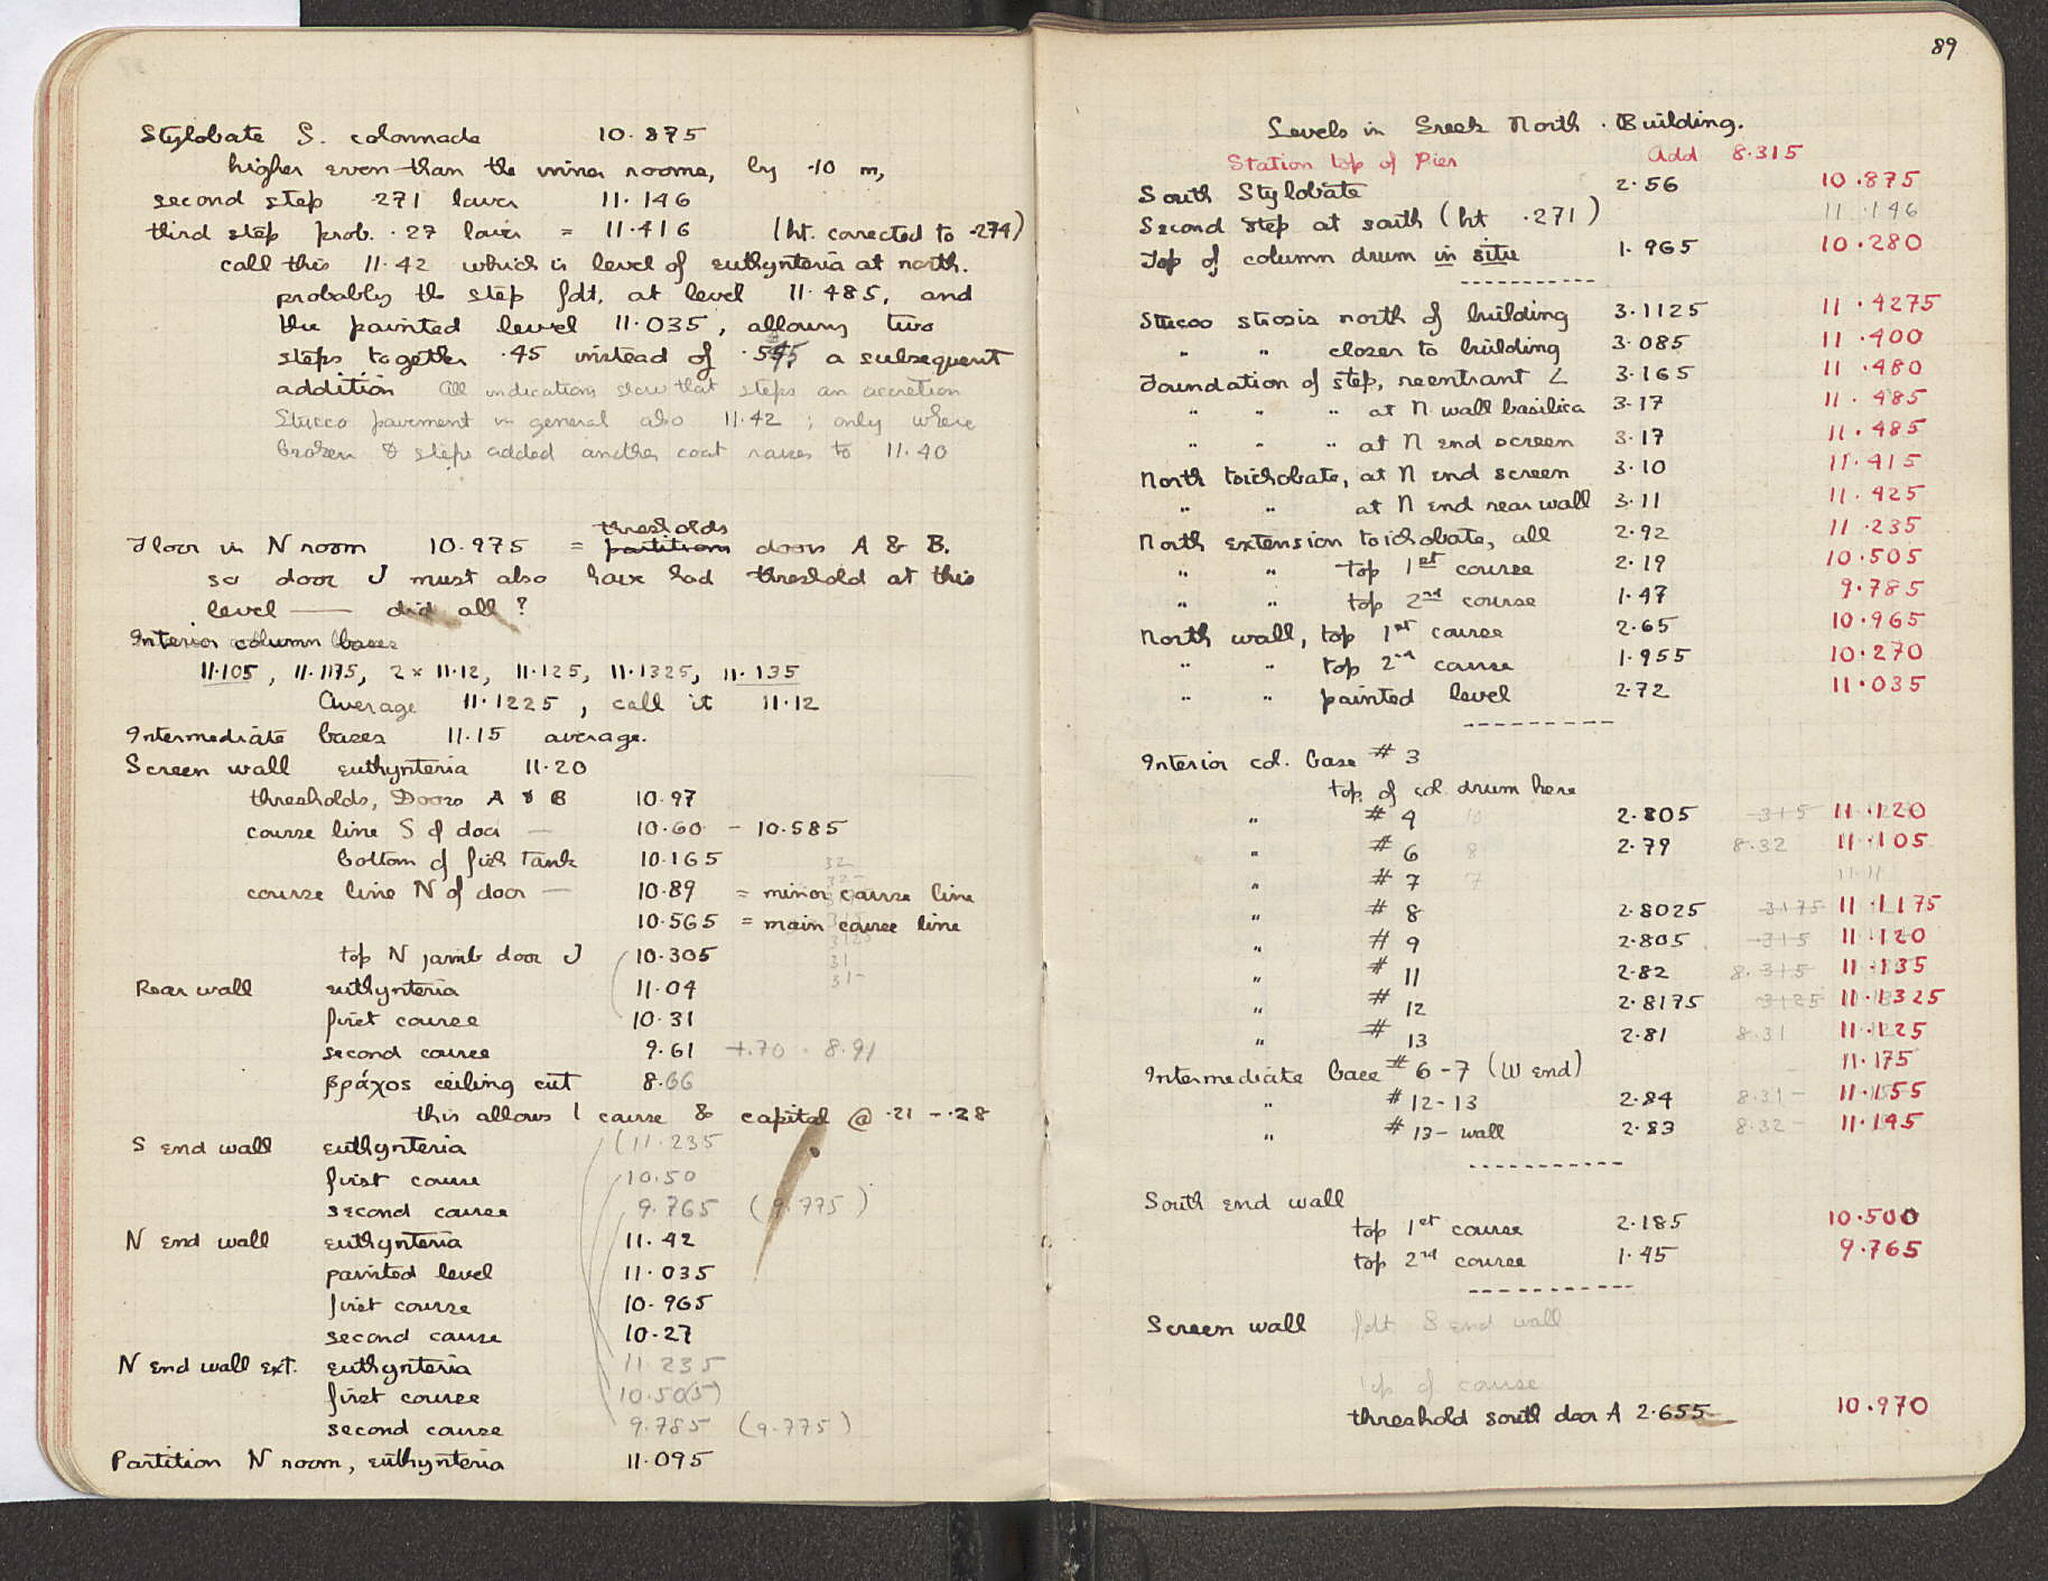 Stylobate S. colonnade 10.875
higher even than the inner rooms, by .10 m,
second step .271 lower 11.146
third step prob. .27 lower = 11.416 (ht. corrected to .274)
call this 11.42 which is level of euthynteria at north.
probably the step fdt. at level 11.485, and
the painted level 11.035, allowing two
steps together .45 instead of .545 a subsequent
addition All indications show that steps an accretion
Stucco pavement in general also 11.42 ; only where
broken & steps added another coat raises to 11.40
thresholds
Floor in N room 10.975 = partitions doors A & B.
so door J must also have had threshold at this
level — did all ?
Interior column bases
11.105, 11.1175, 2 x 11.12, 11.125, 11.1325, 11.135
Average 11.1225, call it 11.12
Intermediate bases 11.15 average.
Screen wall euthynteria 11.20
thresholds, Doors A & B 10.97
course line S of door — 10.60 - 10.585
bottom of fish tank 10.165
course line N of door — 10.89 = minor course line
10.565 = main course line
top N jamb door J 10.305
Rear wall euthynteria 11.04
first course 10.31
second course 9.61 +.70 . 8.91
βράχος ceiling cut 8.66
this allows 1 course & capital @ .21 - .28
S end wall euthynteria (11.235
first course 10.50
second course 9.765 (9.775)
N end wall euthynteria 11.42
painted level 11.035
first course 10.965
second course 10.27
N end wall ext. euthynteria 11.235
first course 10.50(5)
second course 9.785 (9.775)
Partition N room, euthynteria 11.095
89
Levels in Greek North Building.
Station top of Pier Add 8.315
South Stylobate 2.56 10.875
Second step at south (ht .271) 11.146
Top of column drum in situ 1.965 10.280
Stucco strosis north of building 3.1125 11.4275
" " closer to building 3.085 11.400
Foundation of step, reentrant ∠ 3.165 11.480
" " " at N wall basilica 3.17 11.485
" " " at N end screen 3.17 11.485
North toichobate, at N end screen 3.10 11.415
" " at N end rear wall 3.11 11.425
North extension toichobate, all 2.92 11.235
" " top 1st course 2.19 10.505
" " top 2nd course 1.47 9.785
North wall, top 1st course 2.65 10.965
" " top 2nd course 1.955 10.270
" " painted level 2.72 11.035
Interior col. base # 3
top of col. drum here
" # 4 10 2.805 315 11.120
" # 6 8 2.79 8.32 11.105
" # 7 7 11.11
" # 8 2.8025 3175 11.1175
" # 9 2.805 315 11.120
" # 11 2.82 8.315 11.135
" # 12 2.8175 3125 11.1325
" # 13 2.81 8.31 11.125
Intermediate base # 6-7 (W end) 11.175
" # 12-13 2.84 8.31- 11.155
" # 13-wall 2.83 8.32- 11.145
South end wall
top 1st course 2.185 10.500
top 2nd course 1.45 9.765
Screen wall fdt. S end wall
top of course
threshold south door A 2.655 10.970